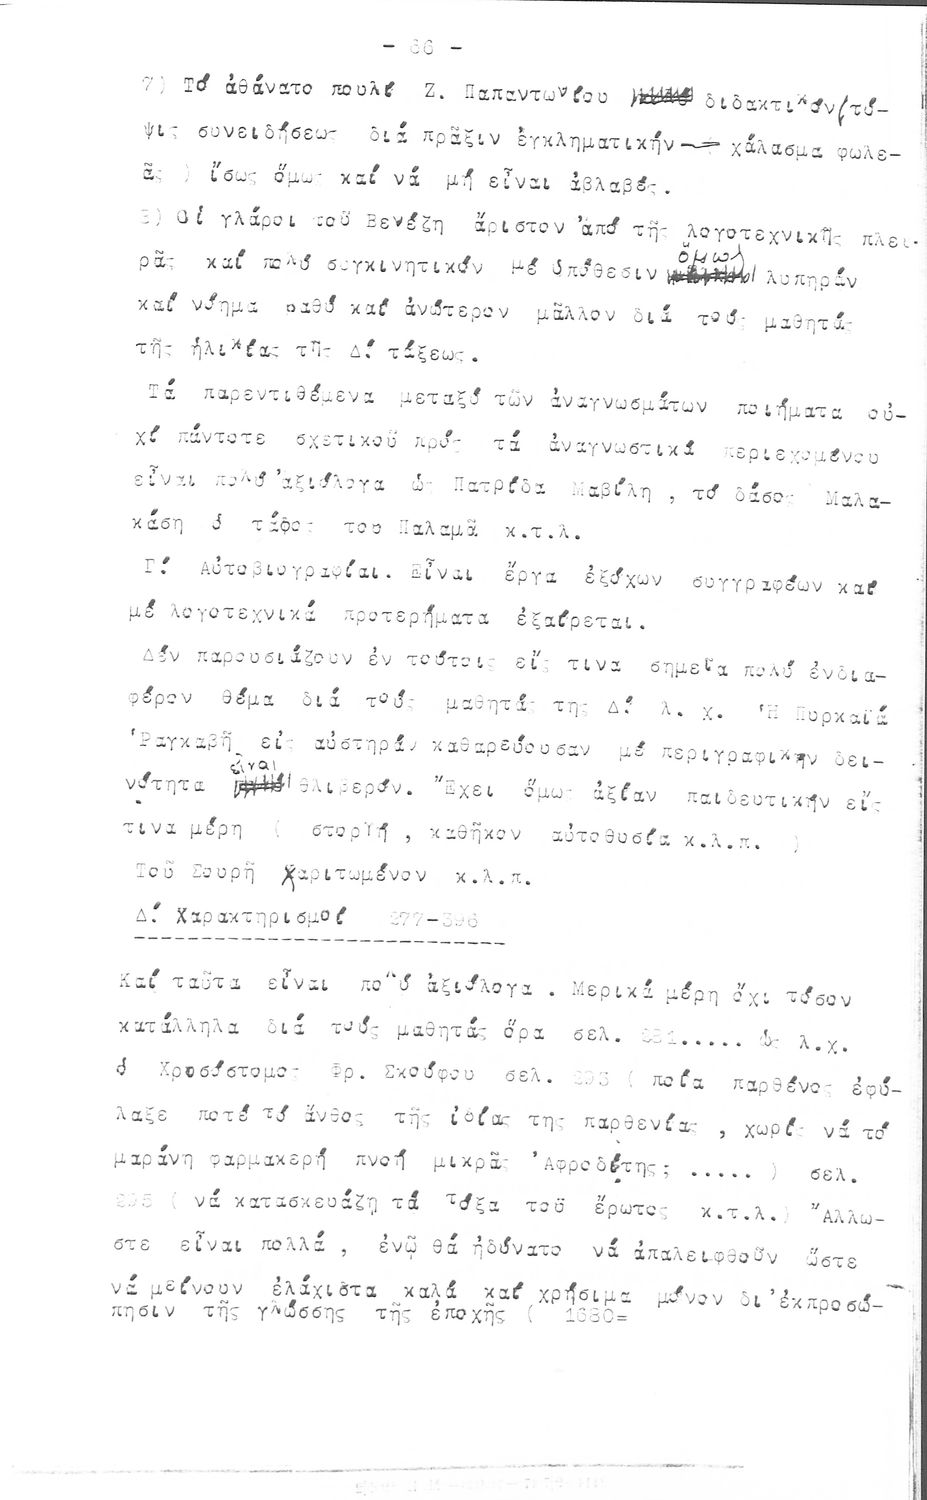 - 66 -
7) Τό ἀθάνατο πουλί Ζ. Παπαντωνίου διδακτικόν(τύ-
ψις συνειδήσεως διά πρᾶξιν ἐγκληματικήν → χάλασμα φωλε-
ᾶς ) ἴσως ὅμως καί νά μή εἶναι ἀβλαβές.
8) Οἱ γλάροι τοῦ Βενέζη ἄριστον ἀπό τῆς λογοτεχνικῆς πλευ-
ρᾶς καί πολύ συγκινητικόν μέ ὑπόθεσιν ὅμως λυπηράν
καί νόημα βαθύ καί ἀνώτερον μᾶλλον διά τούς μαθητάς
τῆς ἡλικίας τῆς Δ΄ τάξεως.
Τά παρεντιθέμενα μεταξύ τῶν ἀναγνωσμάτων ποιήματα οὐ-
χί πάντοτε σχετικοῦ πρός τά ἀναγνωστικά περιεχομένου
εἶναι πολύ ἀξιόλογα ὡς Πατρίδα Μαβίλη , τό δάσος Μαλα-
κάση ὁ τάφος του Παλαμᾶ κ.τ.λ.
Γ΄ Αὐτοβιογραφίαι. Εἶναι ἔργα ἐξόχων συγγραφέων καί
μέ λογοτεχνικά προτερήματα ἐξαίρεται.
Δέν παρουσιάζουν ἐν τούτοις εἴς τινα σημεῖα πολύ ἐνδια-
φέρον θέμα διά τούς μαθητάς της Δ΄ λ. χ. Ἡ Πυρκαϊά
Ῥαγκαβῆ εἰς αὐστηράν καθαρεύουσαν μέ περιγραφικήν δει-
νότητα εἶναι θλιβερόν. Ἔχει ὅμως ἀξίαν παιδευτικήν εἴς
τινα μέρη ( στοργή , καθῆκον αὐτοθυσία κ.λ.π. )
Τοῦ Σουρῆ Χαριτωμένον κ.λ.π.
Δ΄ Χαρακτηρισμοί 277-396
Καί ταῦτα εἶναι πολύ ἀξιόλογα . Μερικά μέρη ὄχι τόσον
κατάλληλα διά τούς μαθητάς ὅρα σελ. ..... ὡς λ.χ.
ὁ Χρυσόστομος Φρ. Σκούφου σελ. 293 ( ποία παρθένος ἐφύ-
λαξε ποτέ τό ἄνθος τῆς ἰδίας της παρθενίας , χωρίς νά τό
μαράνη φαρμακερή πνοή μικρᾶς Ἀφροδίτης; ..... ) σελ.
295 ( νά κατασκευάζη τά τόξα τοῦ ἔρωτος κ.τ.λ.) Ἄλλω-
στε εἶναι πολλά , ἐνῷ θά ἠδύνατο νά ἀπαλειφθοῦν ὥστε
νά μείνουν ἐλάχιστα καλά καί χρήσιμα μόνον δι' ἐκπροσώ-
πησιν τῆς γλώσσης τῆς ἐποχῆς ( 1680=